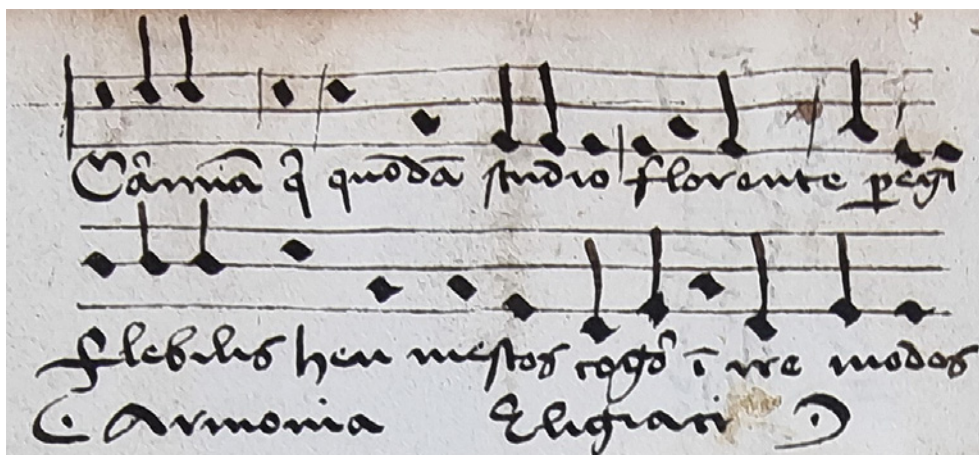 Carmĩa q̃ quõdã studio florente ꝑegi
flebilis heu mestos cogor̃ ĩ ire modos
Armonia Eligiaci